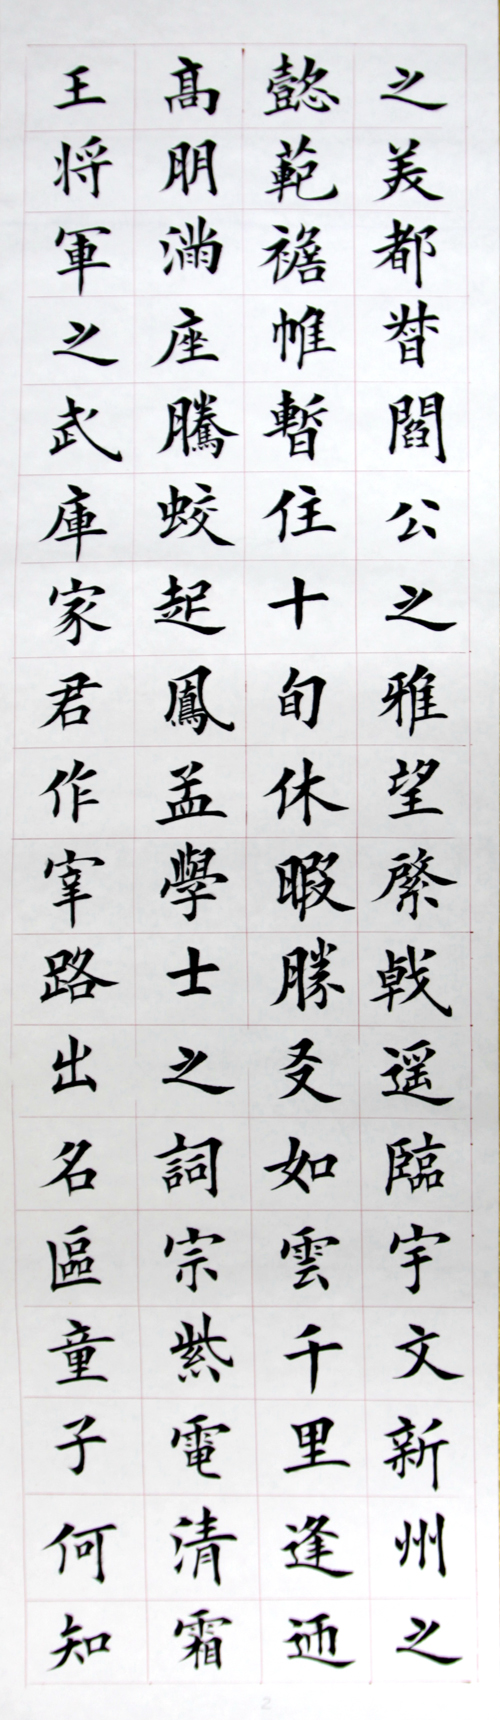 之美都督閻公之雅望棨戟遥臨宇文新州之
懿範襜帷暫住十旬休暇勝友如雲千里逢迎
髙朋滿座騰蛟起鳳孟學士之詞宗紫電清霜
王将軍之武庫家君作宰路出名區童子何知
2